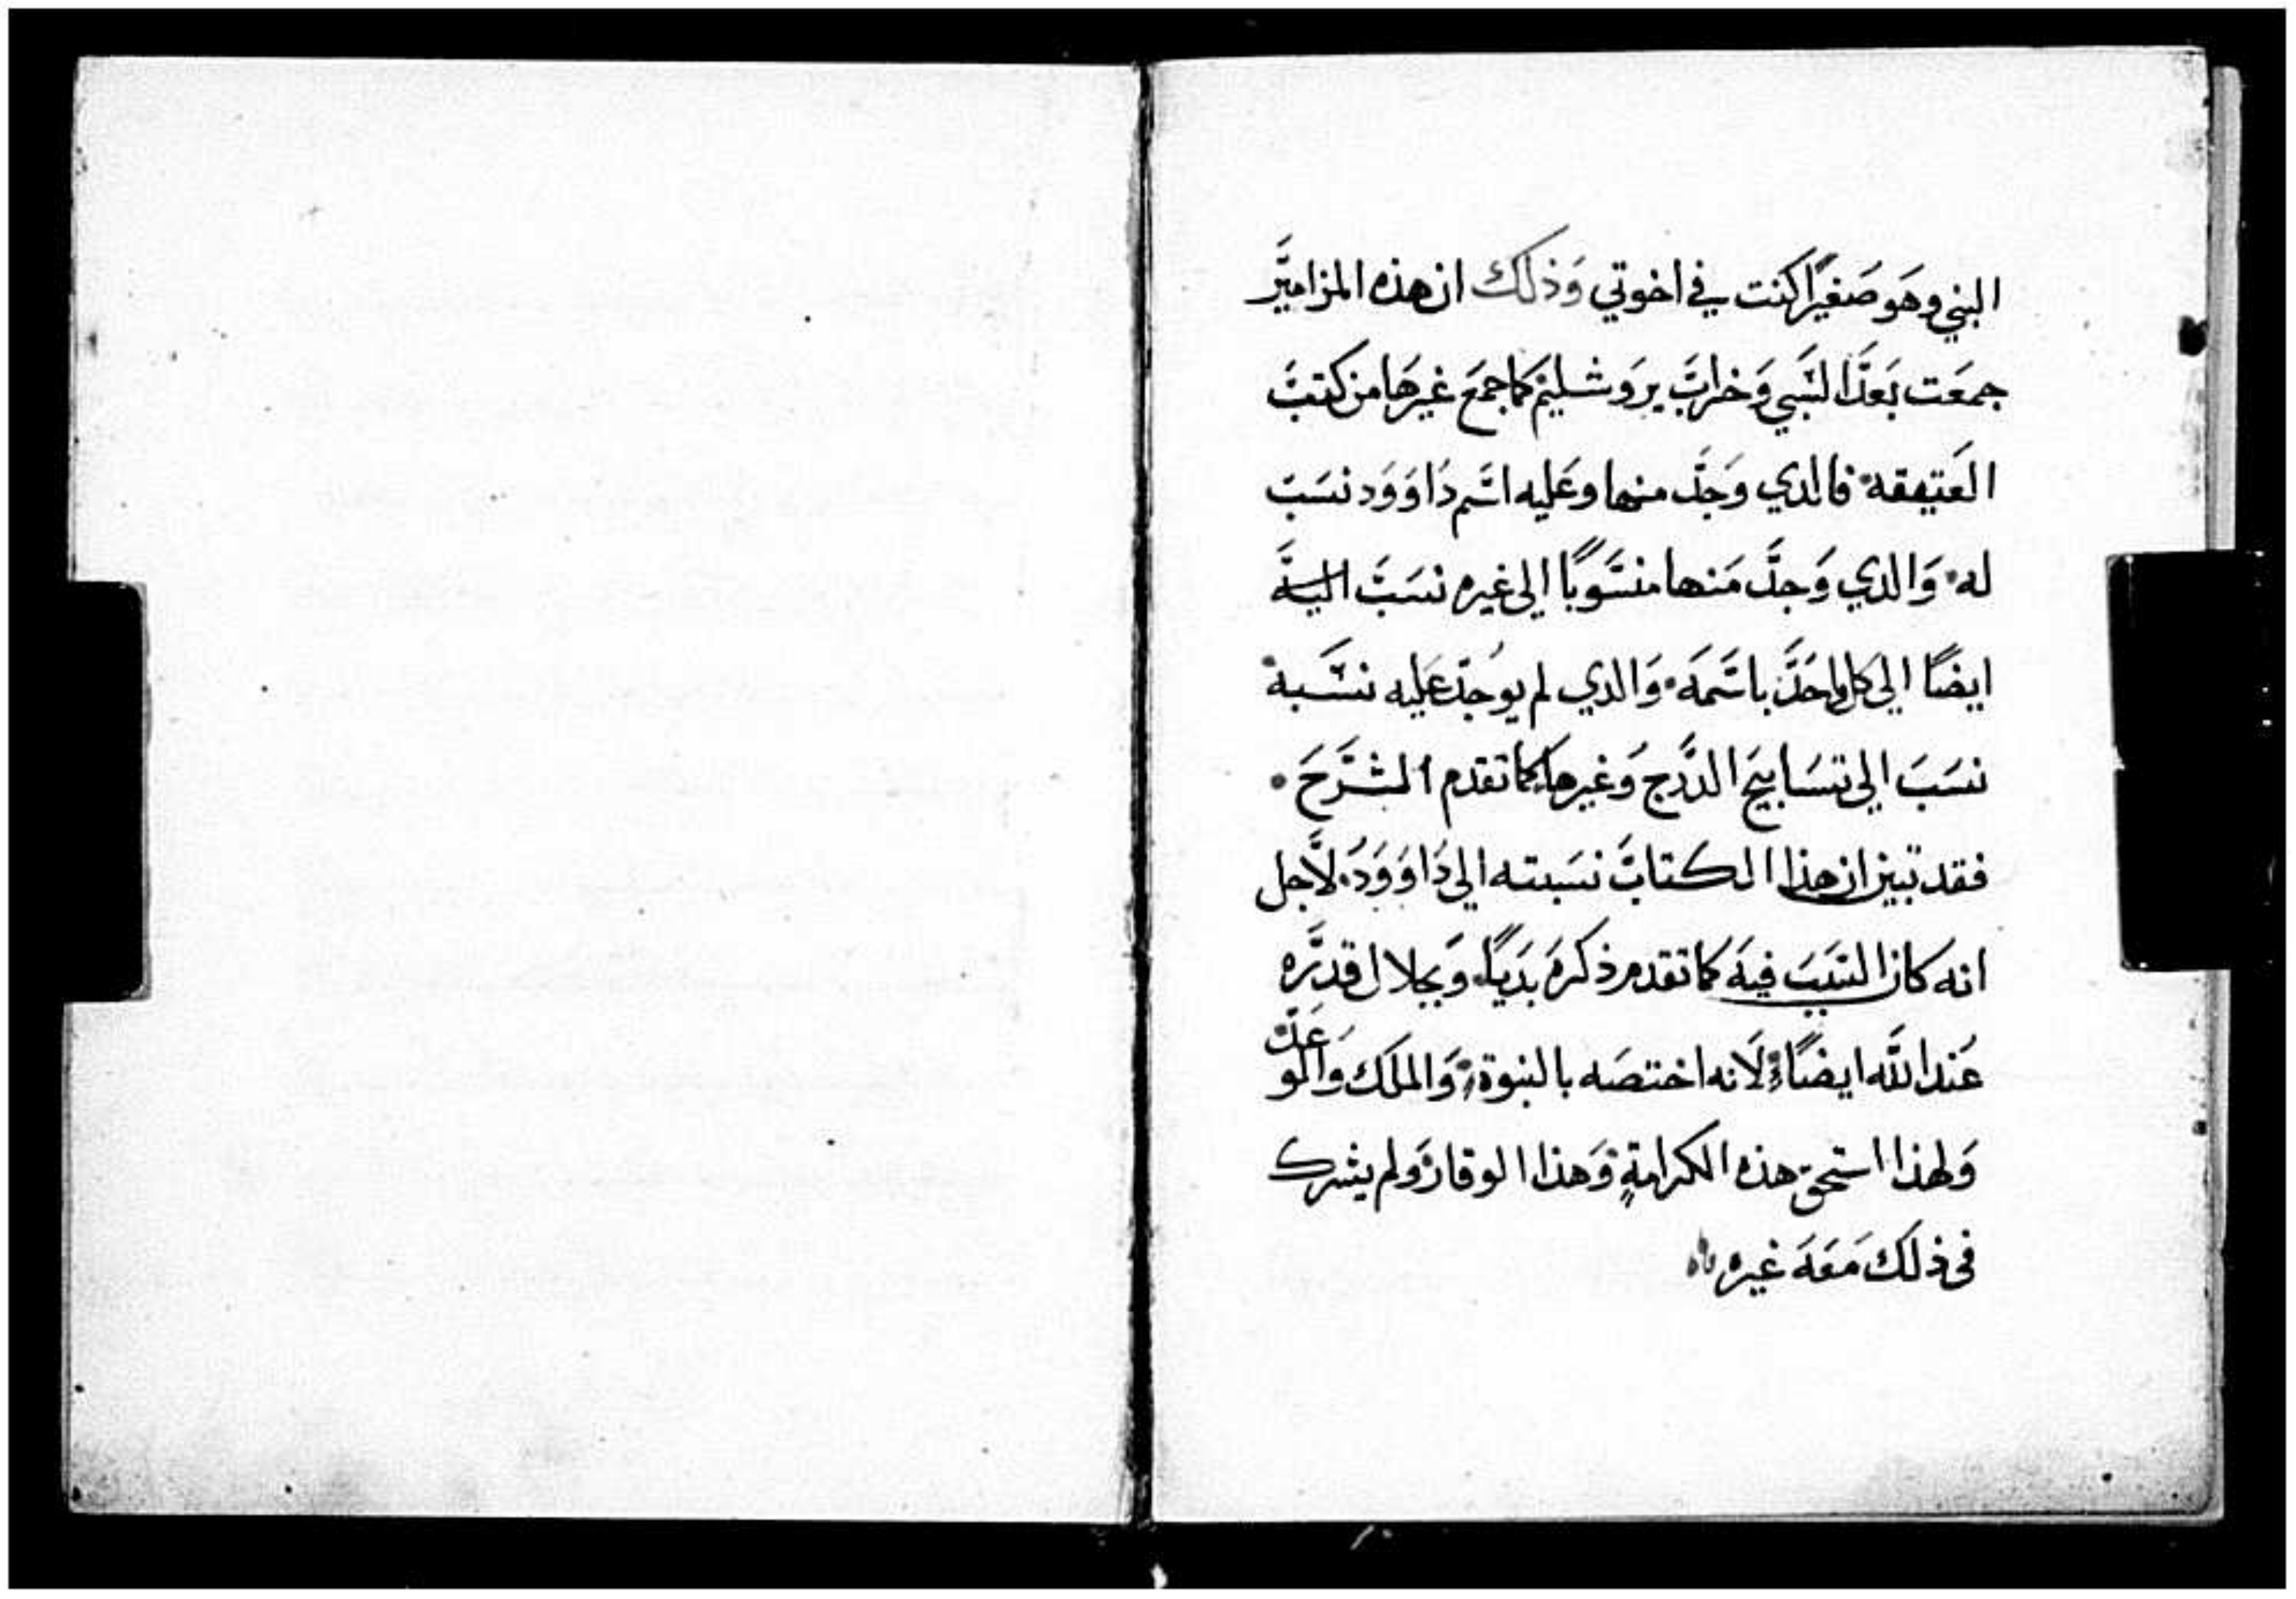 النبي وهو صغيرًا كنت في اخوتي وذلك ان هذه المزامير
جمعت بعد السبي وخراب يروشليم كما جمع غيرها من كتب
العتيقه فالدي وجد منها وعليه اسم داوود نسب
له والدي وجد منها منسوبًا الي غيره نسب اليه
ايضًا الي كل واحد باسمه والدي لم يوجد عليه نسبة
نسب الي تسابيح الدرج وغيرها كما تقدم الشرح
فقد تبين ان هذا الكتاب نسبته الي داوود لاجل
انه كان السبب فيه كما تقدم ذكره بديًا وبجلال قدره
عند الله ايضًا لانه اختصه بالنبوة والملك والوعد
ولهذا استحق هذه الكرامة وهذا الوقار ولم يشرك
في ذلك معه غيره